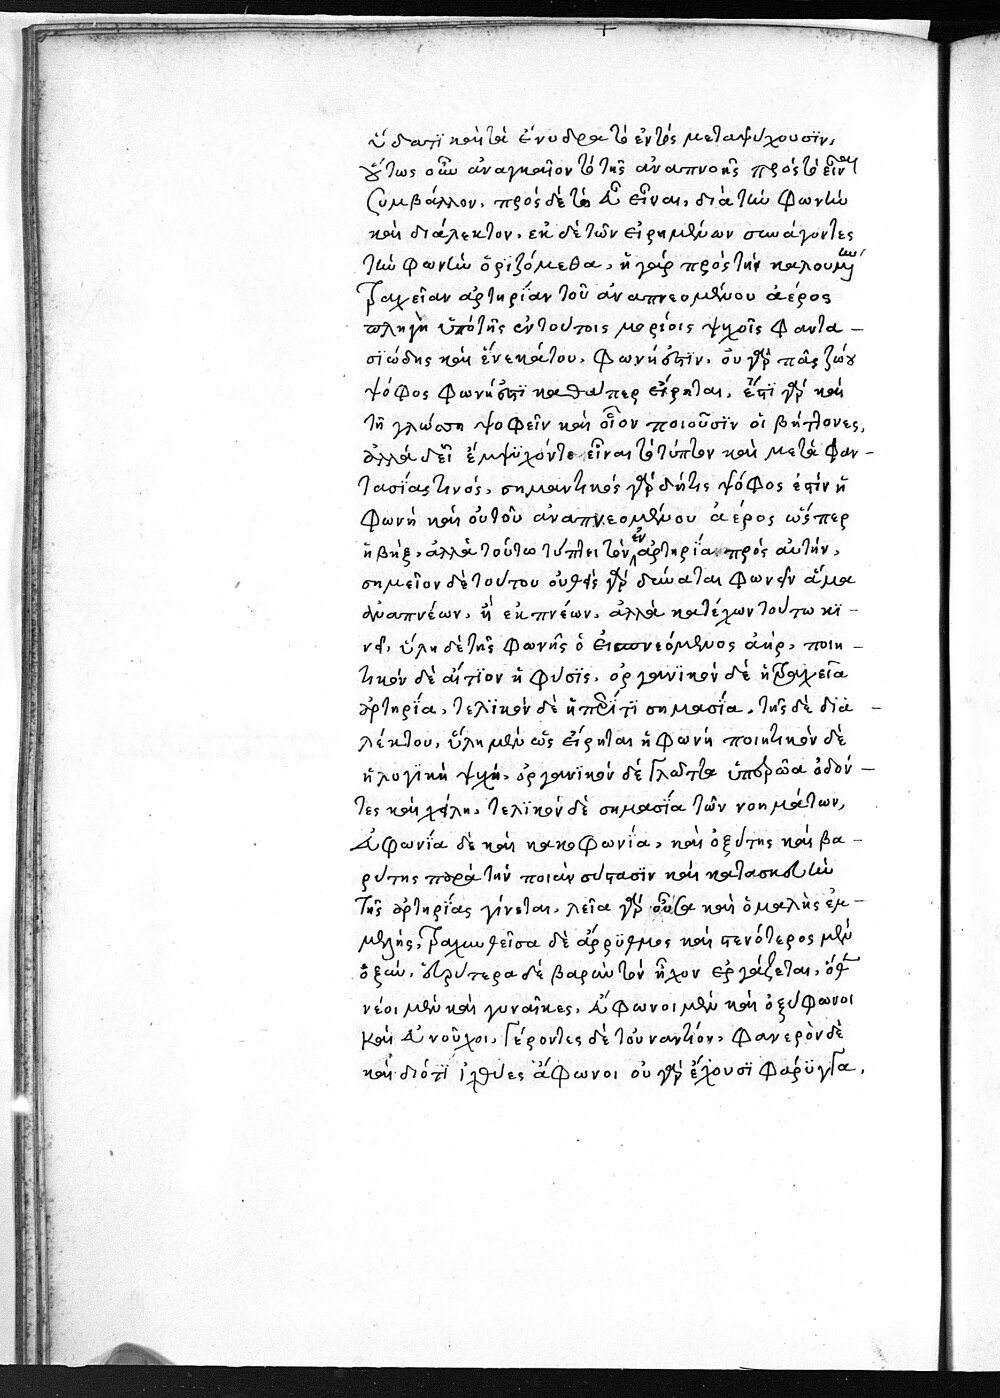 ὕδατϊ καὶ τὰ ἔνυδρα τὸ ἐντὸς μεταψύχουσϊν,
οὕτως οὖν ἀναγκαῖον τὸ τῆς ἀναπνοῆς πρὸς τὸ εἶναι
συμβάλλον, πρὸς δὲ τὸ εὖ εἶναι, διὰ τὴν φωνὴν
καὶ διάλεκτον, ἐκ δὲ τῶν εἰρημένων συνάγοντες
τὴν φωνὴν ὁριζόμεθα, ἡ γὰρ πρὸς τὴν καλουμένην
τραχεῖαν ἀρτηρίαν τοῦ ἀναπνεομένου ἀέρος
πληγὴ ὑπὸ τῆς ἐν τούτοις μορίοις ψυχῆς φαντα –
σϊώδης καὶ ἕνεκά του, φωνή ἐστϊν, οὐ γὰρ πᾶς ζώου
ψόφος φωνή ἐστϊ καθάπερ εἴρηται, ἔστϊ γὰρ καὶ
τῇ γλώσσῃ ψοφεῖν καὶ οἷον ποιοῦσϊν οἱ βήττονες,
ἀλλὰ δεῖ ἔμψϋχόν τε εἶναι τὸ τύπτον καὶ μετὰ φαν –
τασίας τινός, σημαντικὸς γὰρ δή τις ψόφος ἐστὶν ἡ
φωνὴ καὶ οὐ τοῦ ἀναπνεομένου ἀέρος ὥσπερ
ἡ βήξ, ἀλλὰ τούτω τύπτει τὸν ἐν ἀρτηρίᾳ πρὸς αὐτήν,
σημεῖον δὲ τούτου οὐθεὶς γὰρ δύναται φωνεῖν ἅμα
ἀναπνέων, ἢ ἐκπνέων, ἀλλὰ κατέχων τούτω κϊ –
νεῖ, ὕλη δὲ τῆς φωνῆς ὁ εἰσπνεόμενος ἀήρ, ποιη –
τικὸν δὲ αἴτϊον ἡ φύσϊς, ὀργανϊκὸν δὲ ἡ τραχεῖα
ἀρτηρία, τελϊκὸν δὲ ἡ περί τϊ σημασία, τῆς δὲ δϊα –
λέκτου, ὕλη μὲν ὡς εἴρηται ἡ φωνὴ ποιητικὸν δὲ
ἡ λογϊκὴ ψυχή, ὀργανϊκὸν δὲ γλῶττα ὑπερῶα ὀδόν –
τες καὶ χείλη, τελϊκὸν δὲ σημασία τῶν νοημάτων,
εὐφωνΐα δὲ καὶ κακοφωνία, καὶ ὀξύτης καὶ βα –
ρύτης παρὰ τὴν ποιὰν σύστασϊν καὶ κατασκευὴν
τῆς ἀρτηρίας γίνεται, λεία γὰρ οὖσα καὶ ὁμαλὴς ἐμ –
μελής, τραχυνθεῖσα δὲ ἄρρϋθμος καὶ στενότερος μὲν
ὀξὺν, εὐρύτερα δὲ βαρὺν τὸν ἦχον ἐργάζεται, ὅθεν
νέοι μὲν καὶ γυναῖκες, εὔφωνοι μὲν καὶ ὀξύφωνοι
καὶ εὐνοῦχοι, γέροντες δὲ τοὐναντίον, φανερὸν δὲ
καὶ διότϊ ἰχθύες ἄφωνοι οὐ γὰρ ἔχουσϊ φάρϋγγα,